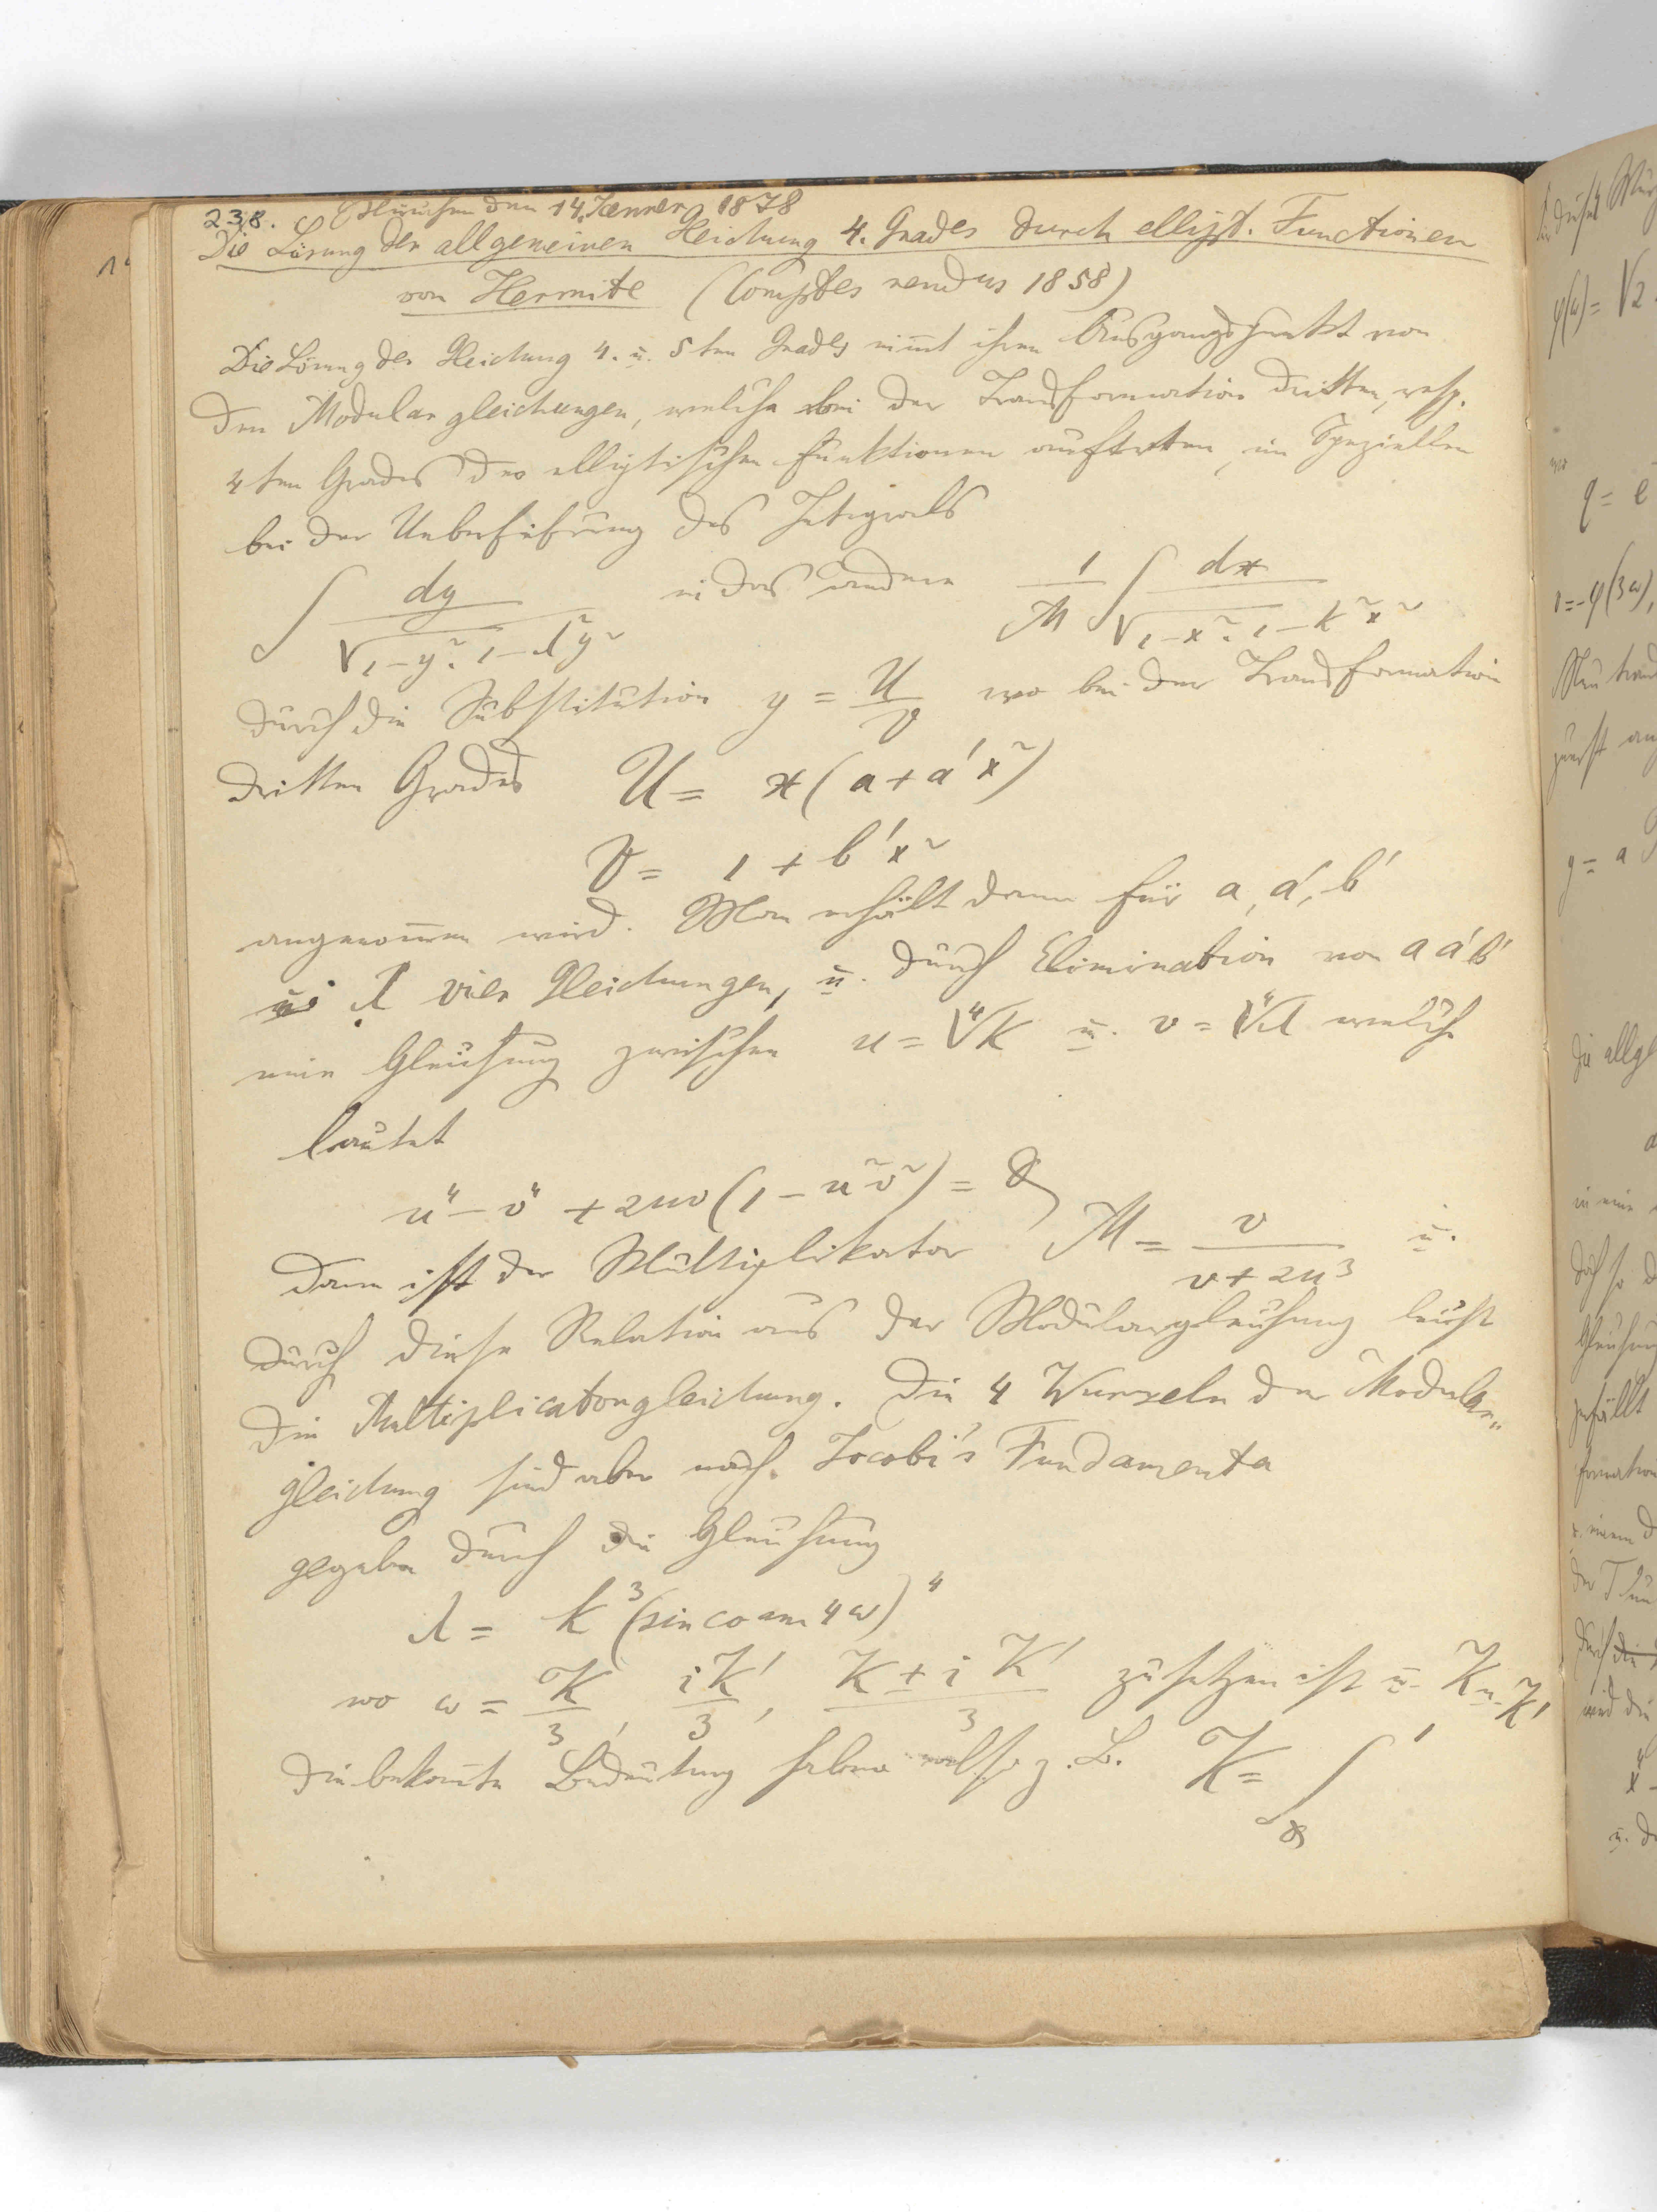 238. München den 14. Jenner 1878
Die Lösung der allgemeinen Gleichung 4. Grades durch ellipt. Functionen
von Hermite (Comptes rendus 1858)
Die Lösung der Gleichung 4. u. 5ten Grades nimt ihren Ausgangspunkt von
den Modulargleichungen, welche bei der Transformation dritten, resp.
4ten Grades der elliptischen Funktionen auftreten, im Speziellen
bei der Ueberführung des Integrals
∫ dy / √1−y².1−λ²y² in das andere 1/M ∫ dx / √1−x².1−k²x²
durch die Substitution y = U/V wo bei der Transformation
dritten Grades U = x(a+a'x²)
V = 1 + b'x²
angenommen wird. Man erhält dann für a, a', b'
u. λ vier Gleichungen, u. durch Elimination von a a' b'
eine Gleichung zwischen u = ∜k u. v = ∜λ welche
lautet
u⁴ − v⁴ + 2uv(1 − u²v²) = 0
Dann ist der Multiplikator M = v / v+2u³ u.
durch diese Relation aus der Modulargleichung leicht
die Multiplicatorgleichung. Die 4 Wurzeln der Modular„
gleichung sind aber nach Jacobi's Fundamenta
gegeben durch die Gleichung
λ = k³(sin co am 4ω)⁴
wo ω = K/3, iK'/3, K±iK'/3 zu setzen ist u. K u. K'
die bekante Bedeutung haben also z. B. K = ∫₀¹